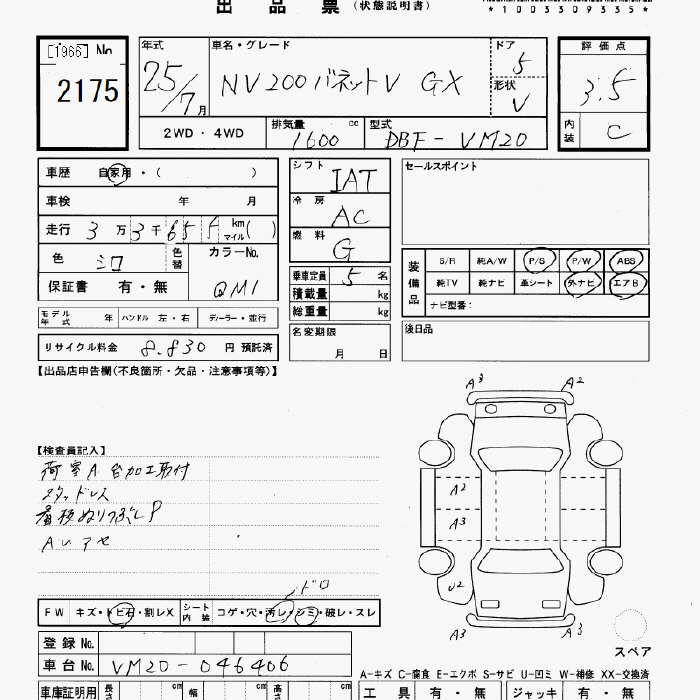 出品票(状態説明書)
*1003309335*
[1966] No
2175
年式 25/7月
車名・グレード NV200バネットV GX
ドア 5
形状 V
評価点 3.5
内装 C
2WD・4WD
排気量 cc 1600
型式 DBF-VM20
車歴 自家用・( )
車検 年 月
走行 3万3千655 km マイル( )
色 シロ 色替
カラーNo. QM1
保証書 有・無
シフト IAT
冷房 AC
燃料 G
乗車定員 5名
積載量 kg
総重量 kg
セールスポイント
装備品
S/R 純A/W P/S P/W ABS
純TV 純ナビ 革シート 外ナビ エアB
ナビ型番:
モデル年式 年 ハンドル 左・右 ディーラー・並行
名変期限 月 日
後日品
リサイクル料金 8.830 円 預託済
【出品店申告欄(不良箇所・欠品・注意事項等)】
【検査員記入】
荷室A 台加工取付
スタッドレス
看板ぬりつぶしP
A A
A2
A3
A3
U2
A3
A3
スペア
ドロ
FW キズ・トビ石・割レX シート内装 コゲ・穴・汚レ・シミ・破レ・スレ
登録No.
車台No. VM20-046406
A-キズ C-腐食 E-エクボ S-サビ U-凹ミ W-補修 XX-交換済
車庫証明用 長さ cm 幅 cm 高さ cm
工具 有・無 ジャッキ 有・無